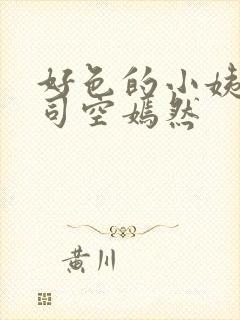 好色的小姨
司空嫣然
黄川